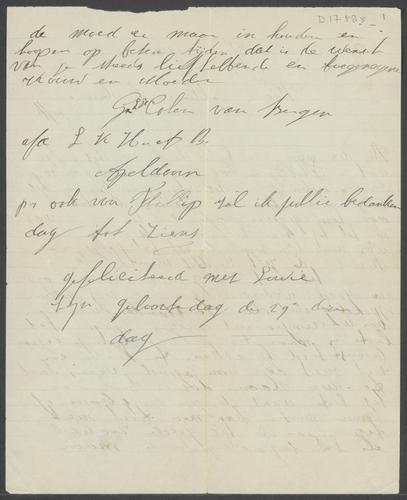 D 17883 - 1
de moed er maar in houden en
hopen op betere tijden, dat is de wensch
van je steeds liefhebbende en toegenegen
vrouw en Moeder
Colen van Bergen
afz L K
Apeldoorn
ps ook van Philip zal ik jullie bedanken
dag tot ziens
gefeliciteerd met Louis
zijn geboortedag de 29e dezer
dag